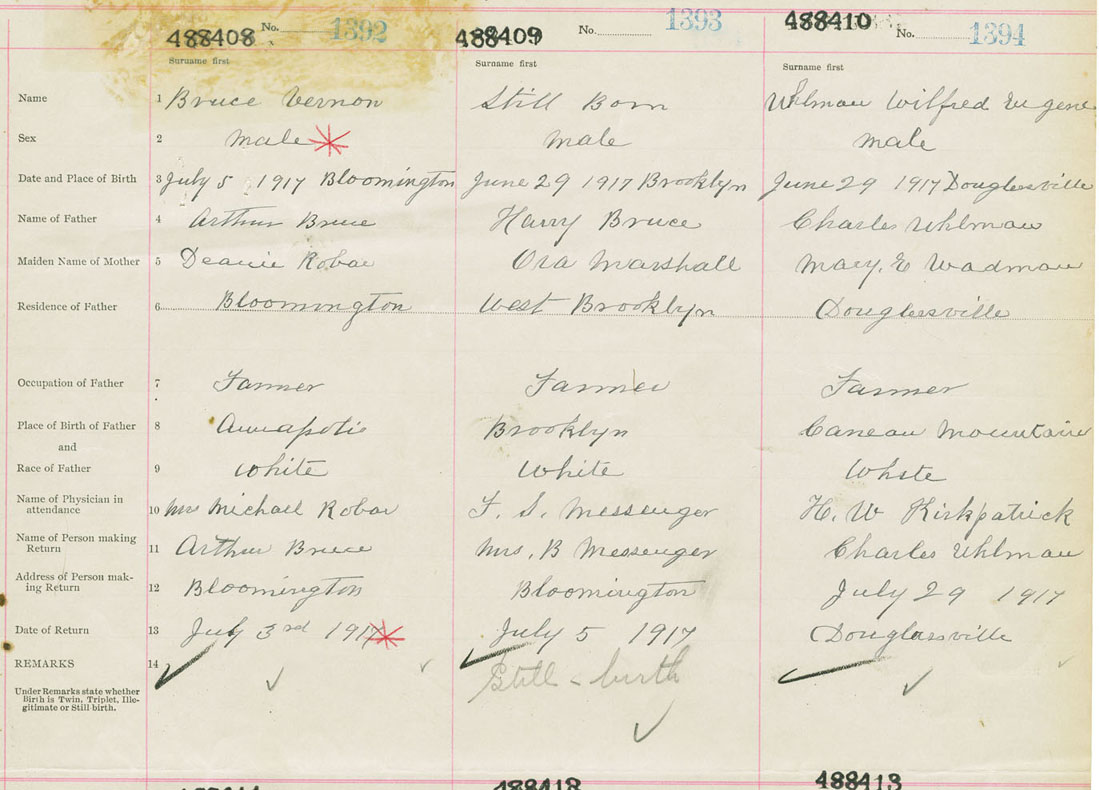 488408 No. 1392 488409 No. 1393 488410 No. 1394
Surname first Surname first Surname first
Name 1 Bruce Vernon Still Born Uhlman Wilfred Eugene
Sex 2 male male male
Date and Place of Birth 3 July 5 1917 Bloomington June 29 1917 Brooklyn June 29 1917 Douglasville
Name of Father 4 Arthur Bruce Harry Bruce Charles Uhlman
Maiden Name of Mother 5 Robar Ora Marshall Mary. E Wadman
Residence of Father 6 Bloomington West Brooklyn Douglasville
Occupation of Father 7 Farmer Farmer Farmer
Place of Birth of Father 8 Annapolis Brooklyn Mountain
and
Race of Father 9 White White White
Name of Physician in attendance 10 Mrs Michael Robar F. S. Messenger H. W Kirkpatrick
Name of Person making Return 11 Arthur Bruce Mrs, B Messenger Charles Uhlman
Address of Person mak-ing Return 12 Bloomington Bloomington July 29 1917
Date of Return 13 July 3rd 1917 July 5 1917 Douglassville
REMARKS 14 Still - birth
Under Remarks state whether
Birth is Twin, Triplet, Ille-
gitimate or Still birth.
488412 488413